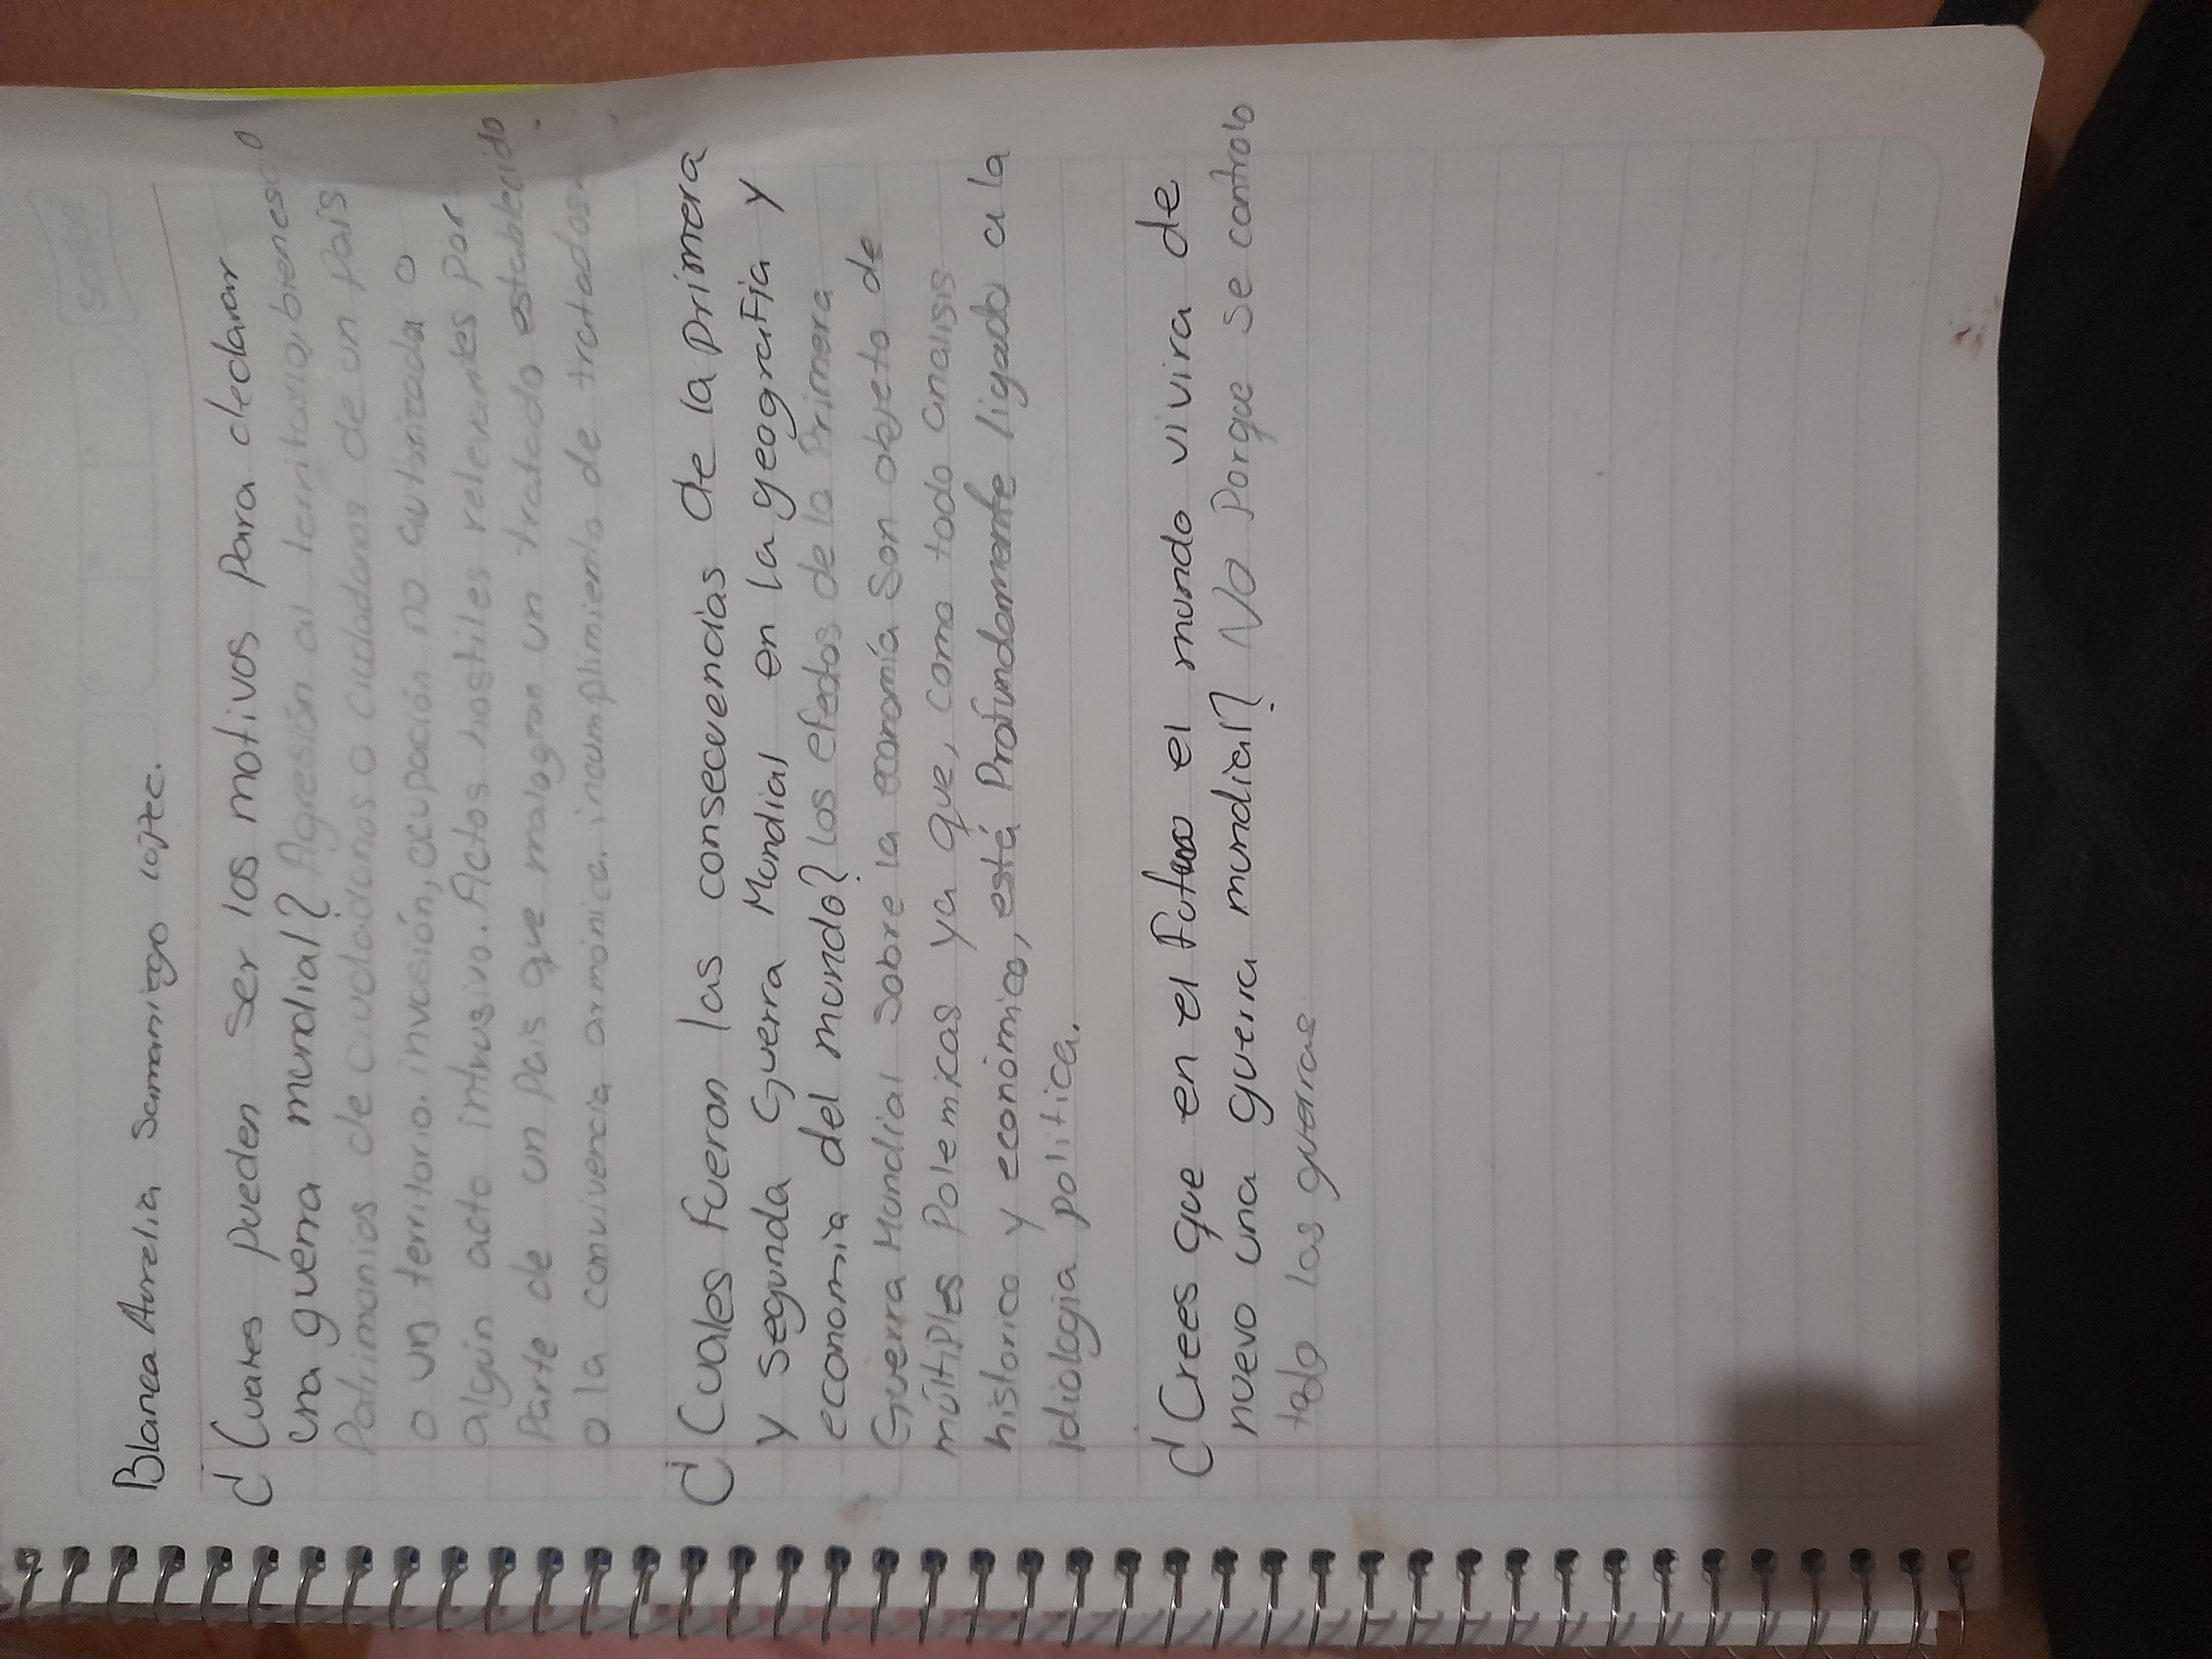 Blanca Aurelia Samaniego López.
¿Cuales pueden ser los motivos para declarar
una guerra mundial? Agresión al territorio, bienes o
Patrimonios de ciudadanos o ciudadanos de un País
o un territorio. invasión, ocupación no autorizada o
algún acto intrusivo. Actos hostiles relevantes por
Parte de un País que malogran un tratado establecido.
o la convivencia armónica. incumplimiento de tratados.
¿Cuales fueron las consecuencias de la primera
y segunda Guerra Mundial en la geografía y
economía del mundo? los efectos de la Primera
Guerra Mundial sobre la economía son objeto de
múltiples Polemicas ya que, como todo analisis
historico y económico, está Profundamente ligado a la
idiología politica.
¿Crees que en el futuro el mundo vivira de
nuevo una guerra mundial? No porque se controlo
todo las guerras